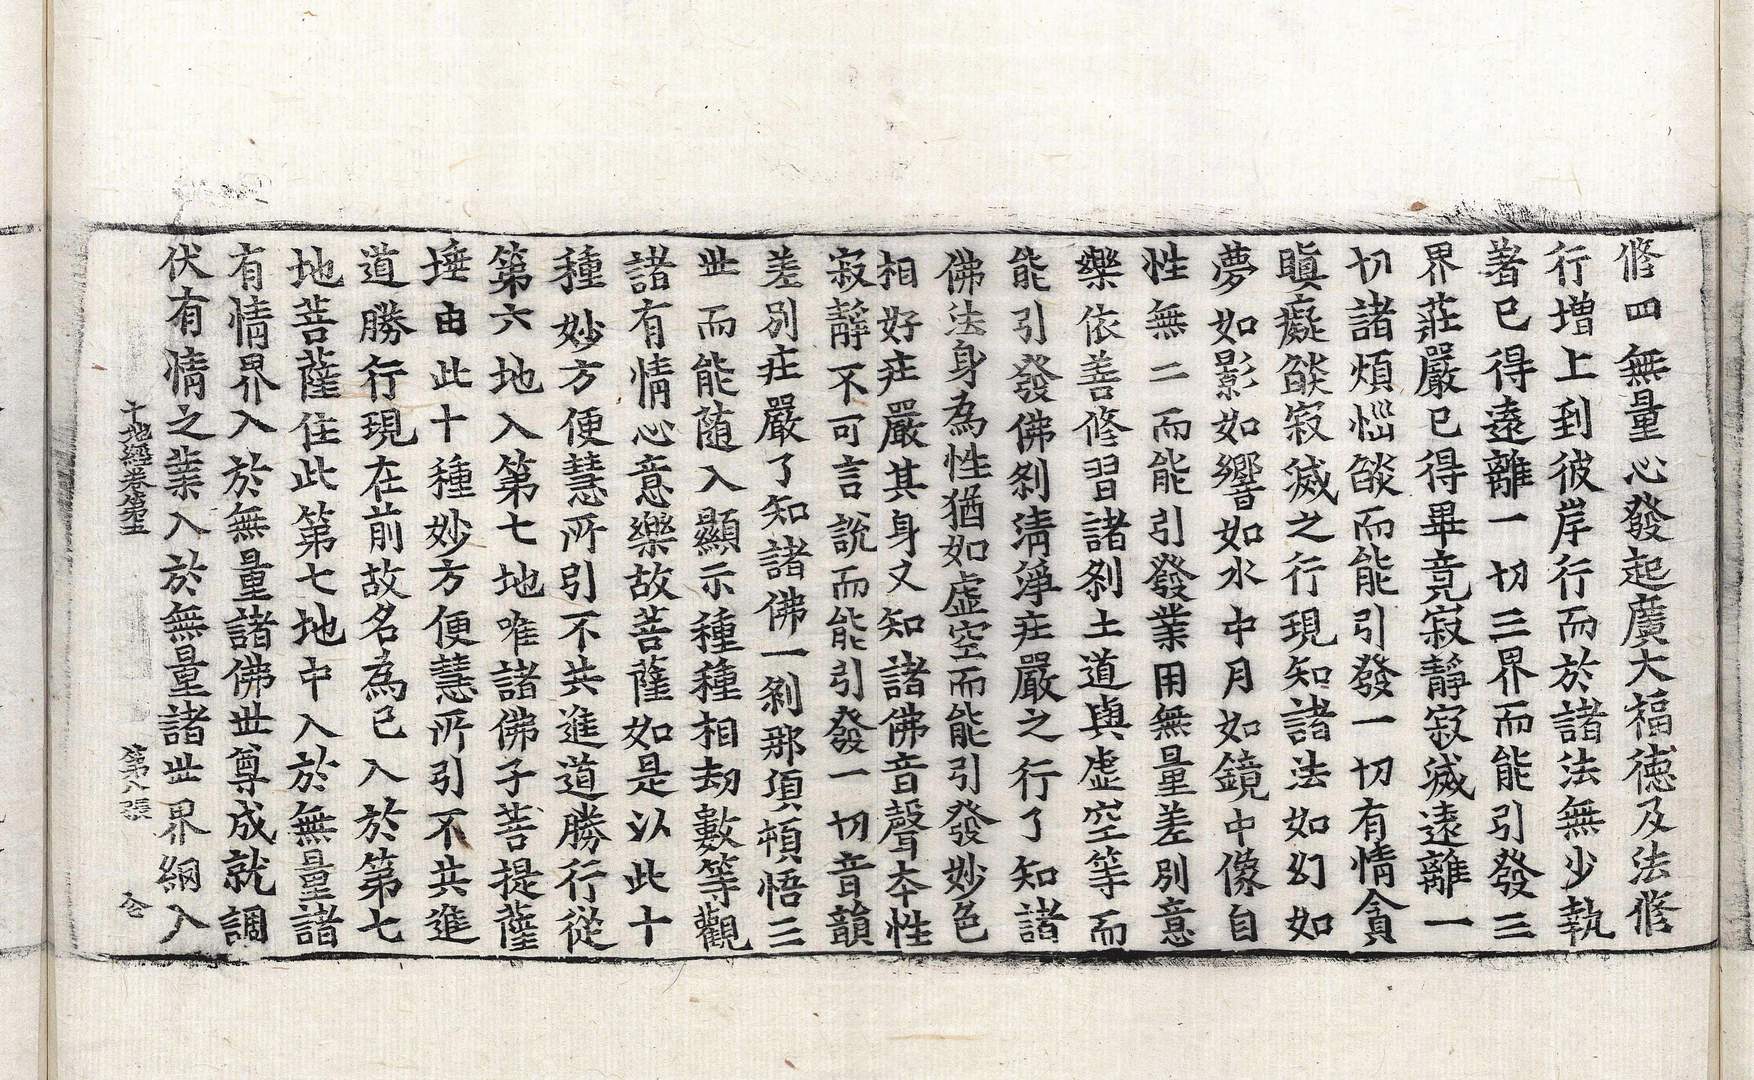 修四無量心發起廣大福德及法修
行增上到彼岸行而於諸法無少執
著已得遠離一切三界而能引發三
界莊嚴已得畢竟寂靜寂滅遠離一
切諸煩惱燄而能引發一切有情貪
瞋癡燄寂滅之行現知諸法如幻如
夢如影如響如水中月如鏡中像自
性無二而能引發業用無量差別意
樂依善修習諸剎土道與虛空等而
能引發佛剎清淨庄嚴之行了知諸
佛法身為性猶如虛空而能引發妙色
相好庄嚴其身又知諸佛音聲本性
寂靜不可言說而能引發一切音韻
差別庄嚴了知諸佛一剎那頃頓悟三
世而能隨入顯示種種相劫數等觀
諸有情心意樂故菩薩如是以此十
種妙方便慧所引不共進道勝行從
第六地入第七地唯諸佛子菩提薩
埵由此十種妙方便慧所引不共進
道勝行現在前故名為已入於第七
地菩薩住此第七地中入於無量諸
有情界入於無量諸佛世尊成就調
伏有情之業入於無量諸世界網入
十地經卷第五 第八張 合